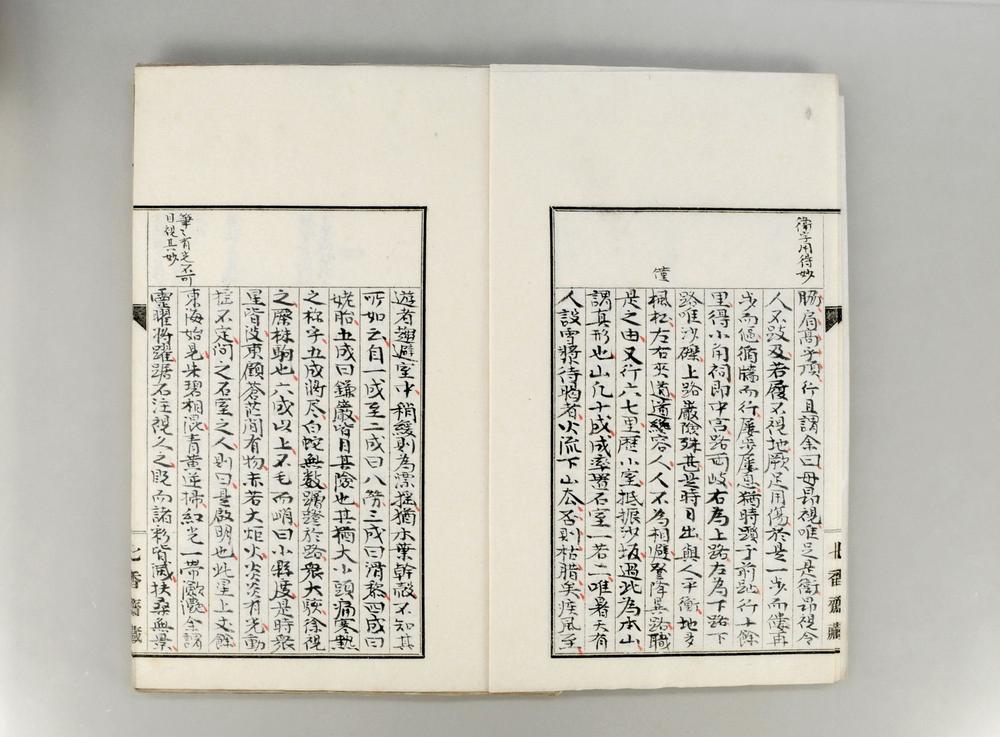 衛字用待妙
肠肩高予頂行且謂余曰毋昂視唯足是衛昂視令
人不跂及若履不視地厥足用傷於是一步而僂再
步而傴循牆而行屢步屢憩猶時躓于前趾行十餘
里得小角祠即中宮路而岐右為上路左為下路下
路唯沙磔上路巖險殊甚是時日出與人平衡地多
僮
楓松左右夾道道纔容人人不為相避登降異路職
是之由又行六七里歷小室抵振沙坂過此為本山
謂真形也山凡十成成率置石室一若二唯暑天有
人設雪將待暍者火流下山太否則枯腊矣疾風至
遊者趨避室中稍緩則為漂搖猶木葉幹殺不知其
所如云自一成至二成曰八
三成曰滑
四成曰
姥胎五成曰鎌巖皆目其險也其猶大小頭痛寒熱
之称乎五成將尽白蛇無数蠲蹬於路衆大駭徐視
之
株駒也六成以上不毛而峭曰小
度是時衆
星皆没東顧蒼茫間有物赤若大炬火火炎炎有光動
搖不定问之石室之人則曰是啟明也此星上丈餘
筆々有光不可
目視其妙
東海始見朱碧相混青黄逆掃紅光一帯瀲灔余謂
靈曜將躍踞石注視久之既而諸彩皆滅扶桑無景
北香齋藏
北香齋藏